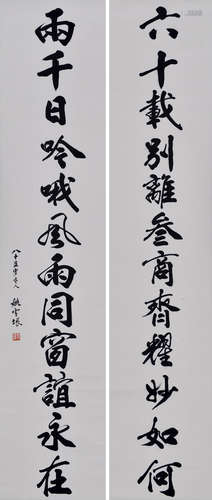 六十載别離叄商齊耀妙如何
兩千日吟哦風雨同窗誼永在
八十五叟